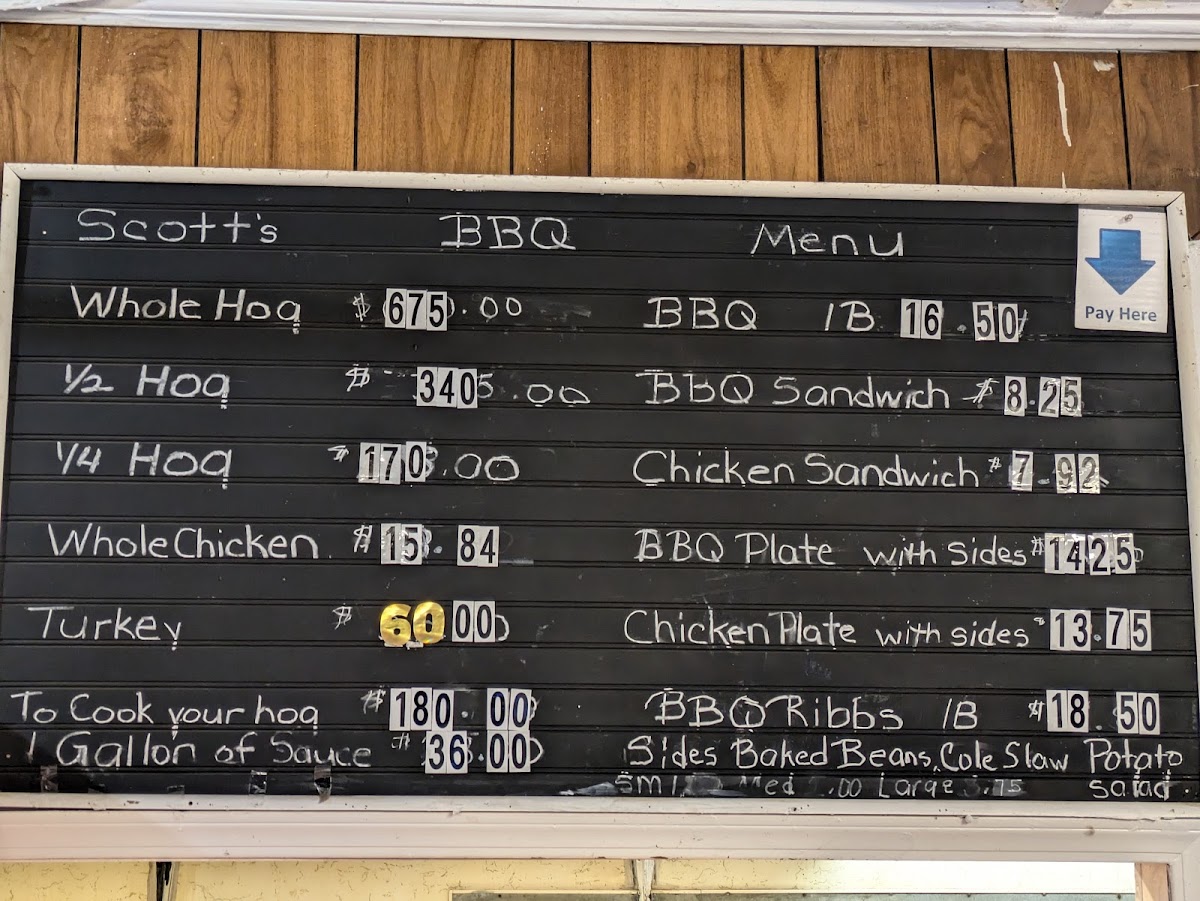 Scott's BBQ Menu
Pay Here
Whole Hog $ 675.00
1/2 Hog $ 340.00
1/4 Hog $ 170.00
Whole Chicken $ 15.84
Turkey $ 60 00
To Cook your hog $ 180.00
1 Gallon of Sauce $ 36.00
BBQ lB 16.50
BBQ Sandwich $ 8.25
Chicken Sandwich $ 7.92
BBQ Plate with Sides $ 14.25
Chicken Plate with sides $ 13.75
BBQ Ribbs lB $ 18.50
Sides Baked Beans, Cole Slaw Potato
Sml Med .00 Large .75 salad.